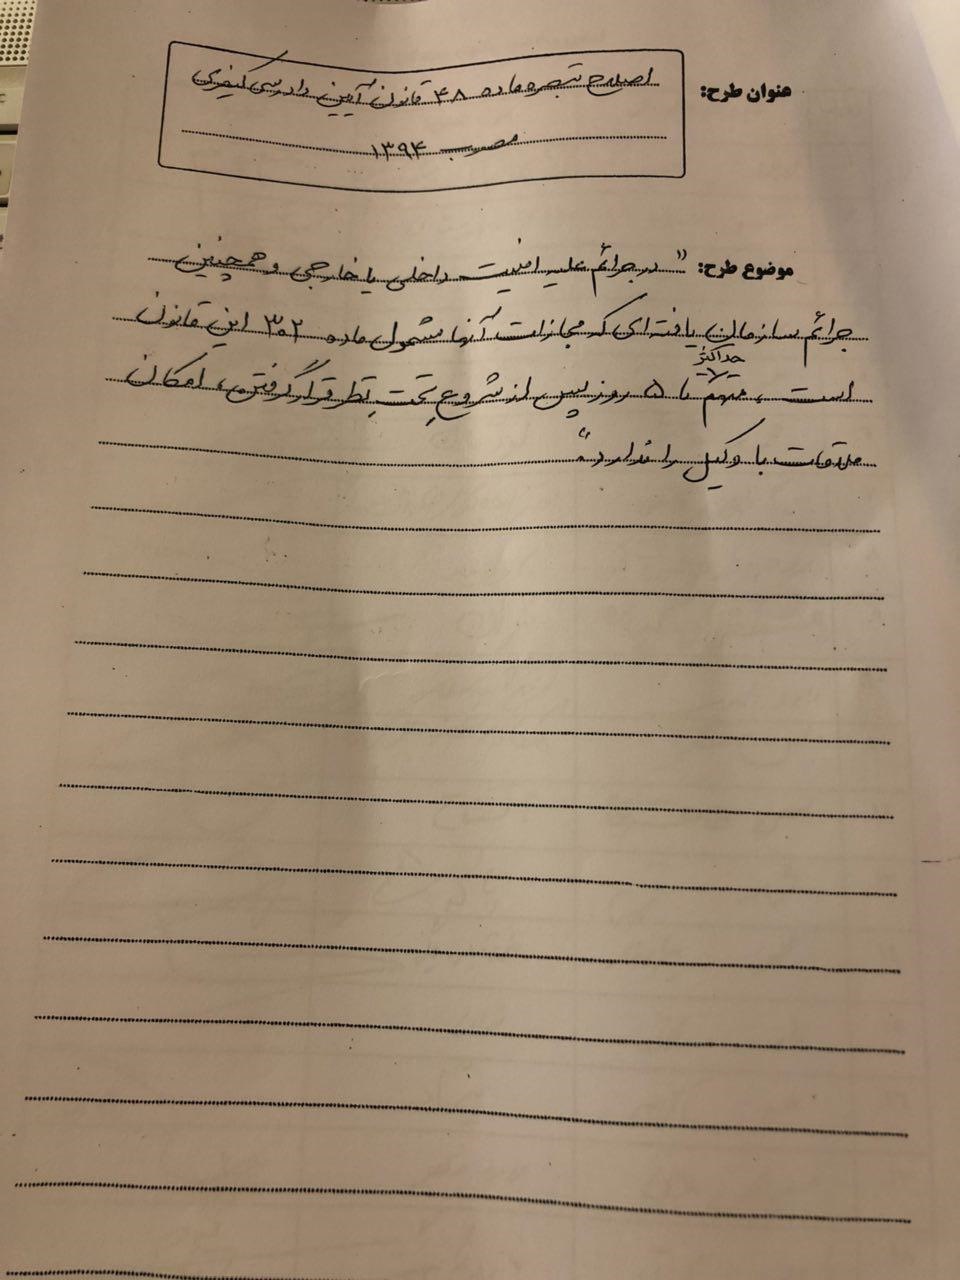 عنوان طرح: اصلاح تبصره ماده ۴۸ قانون آیین دادرسی کیفری
مصوب ۱۳۹۴
موضوع طرح: " در جرائم علیه امنیت داخلی یا خارجی و همچنین
جرائم سازمان یافته‌ای که مجازات آنها مشمول ماده ۳۰۲ این قانون
حداکثر
است، متهم تا ۵ روز پس از شروع تحت نظر قرار گرفتن، امکان
ملاقات با وکیل را ندارد."